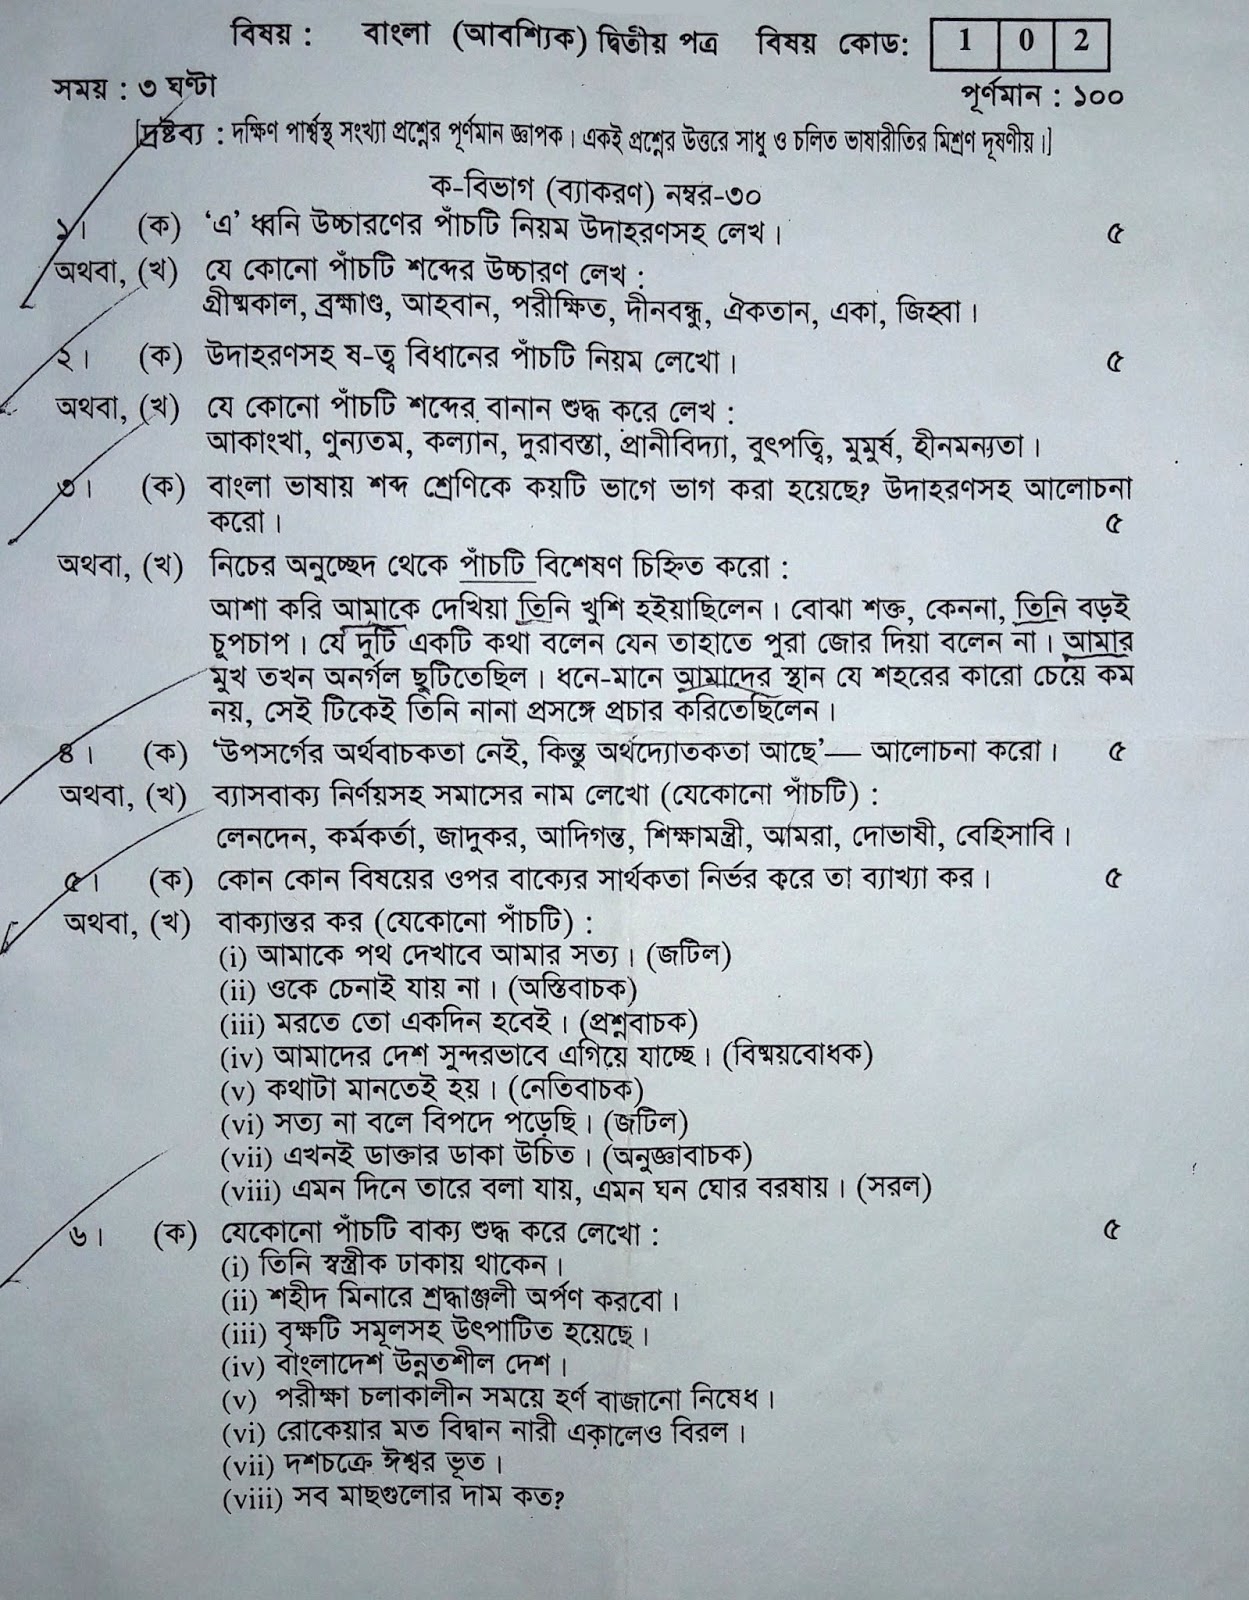 বিষয় : বাংলা (আবশ্যিক) দ্বিতীয় পত্র বিষয় কোড: 1 0 2
সময় : ৩ ঘণ্টা পূর্ণমান : ১০০
[দ্রষ্টব্য : দক্ষিণ পার্শ্বস্থ সংখ্যা প্রশ্নের পূর্ণমান জ্ঞাপক। একই প্রশ্নের উত্তরে সাধু ও চলিত ভাষারীতির মিশ্রণ দূষণীয়।]
ক-বিভাগ (ব্যাকরণ) নম্বর-৩০
১। (ক) ‘এ’ ধ্বনি উচ্চারণের পাঁচটি নিয়ম উদাহরণসহ লেখ। ৫
অথবা, (খ) যে কোনো পাঁচটি শব্দের উচ্চারণ লেখ :
গ্রীষ্মকাল, ব্রহ্মাণ্ড, আহবান, পরীক্ষিত, দীনবন্ধু, ঐকতান, একা, জিহ্বা।
২। (ক) উদাহরণসহ ষ-ত্ব বিধানের পাঁচটি নিয়ম লেখো। ৫
অথবা, (খ) যে কোনো পাঁচটি শব্দের বানান শুদ্ধ করে লেখ :
আকাংখা, ণুন্যতম, কল্যান, দুরাবস্তা, প্রানীবিদ্যা, বুৎপত্বি, মুমুর্ষ, হীনমন্যতা।
৩। (ক) বাংলা ভাষায় শব্দ শ্রেণিকে কয়টি ভাগে ভাগ করা হয়েছে? উদাহরণসহ আলোচনা
করো। ৫
অথবা, (খ) নিচের অনুচ্ছেদ থেকে পাঁচটি বিশেষণ চিহ্নিত করো :
আশা করি আমাকে দেখিয়া তিনি খুশি হইয়াছিলেন। বোঝা শক্ত, কেননা, তিনি বড়ই
চুপচাপ। যে দুটি একটি কথা বলেন যেন তাহাতে পুরা জোর দিয়া বলেন না। আমার
মুখ তখন অনর্গল ছুটিতেছিল। ধনে-মানে আমাদের স্থান যে শহরের কারো চেয়ে কম
নয়, সেই টিকেই তিনি নানা প্রসঙ্গে প্রচার করিতেছিলেন।
৪। (ক) ‘উপসর্গের অর্থবাচকতা নেই, কিন্তু অর্থদ্যোতকতা আছে’— আলোচনা করো। ৫
অথবা, (খ) ব্যাসবাক্য নির্ণয়সহ সমাসের নাম লেখো (যেকোনো পাঁচটি) :
লেনদেন, কর্মকর্তা, জাদুকর, আদিগন্ত, শিক্ষামন্ত্রী, আমরা, দোভাষী, বেহিসাবি।
৫। (ক) কোন কোন বিষয়ের ওপর বাক্যের সার্থকতা নির্ভর করে তা ব্যাখ্যা কর। ৫
অথবা, (খ) বাক্যান্তর কর (যেকোনো পাঁচটি) :
(i) আমাকে পথ দেখাবে আমার সত্য। (জটিল)
(ii) ওকে চেনাই যায় না। (অস্তিবাচক)
(iii) মরতে তো একদিন হবেই। (প্রশ্নবাচক)
(iv) আমাদের দেশ সুন্দরভাবে এগিয়ে যাচ্ছে। (বিষ্ময়বোধক)
(v) কথাটা মানতেই হয়। (নেতিবাচক)
(vi) সত্য না বলে বিপদে পড়েছি। (জটিল)
(vii) এখনই ডাক্তার ডাকা উচিত। (অনুজ্ঞাবাচক)
(viii) এমন দিনে তারে বলা যায়, এমন ঘন ঘোর বরষায়। (সরল)
৬। (ক) যেকোনো পাঁচটি বাক্য শুদ্ধ করে লেখো : ৫
(i) তিনি স্বস্ত্রীক ঢাকায় থাকেন।
(ii) শহীদ মিনারে শ্রদ্ধাঞ্জলী অর্পণ করবো।
(iii) বৃক্ষটি সমূলসহ উৎপাটিত হয়েছে।
(iv) বাংলাদেশ উন্নতশীল দেশ।
(v) পরীক্ষা চলাকালীন সময়ে হর্ণ বাজানো নিষেধ।
(vi) রোকেয়ার মত বিদ্বান নারী একালেও বিরল।
(vii) দশচক্রে ঈশ্বর ভূত।
(viii) সব মাছগুলোর দাম কত?